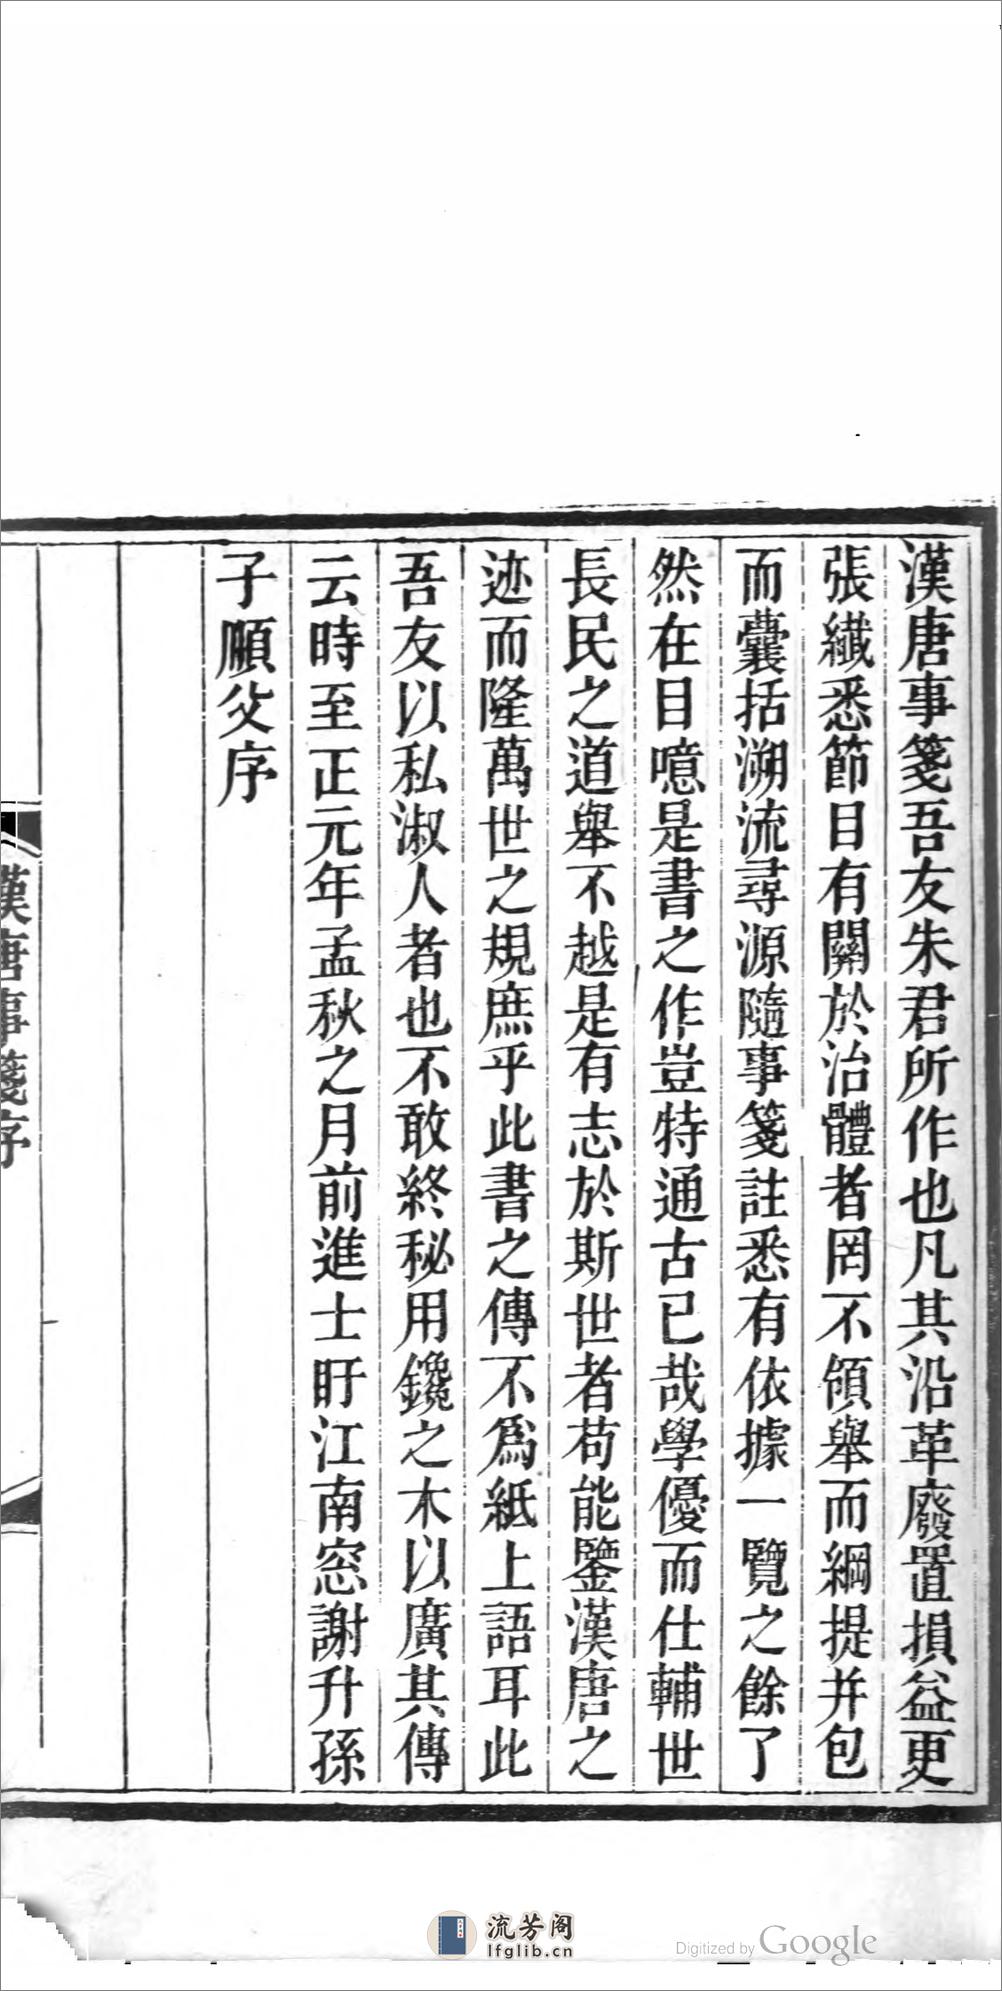 漢唐事箋吾友朱君所作也凡其沿革廢置損益更
張纎悉節目有關於治體者罔不領舉而綱提并包
而囊括溯流尋源隨事箋註悉有依據一覽之餘了
然在目噫是書之作豈特通古已哉學優而仕輔世
長民之道舉不越是有志於斯世者苟能鑒漢唐之
迹而隆萬世之規庶乎此書之傳不爲紙上語耳此
吾友以私淑人者也不敢終秘用鑱之木以廣其傳
云時至正元年孟秋之月前進士盱江南窓謝升孫
子順父序
漢唐事箋序
流芳阁
lfglib.cn
Digitized by Google